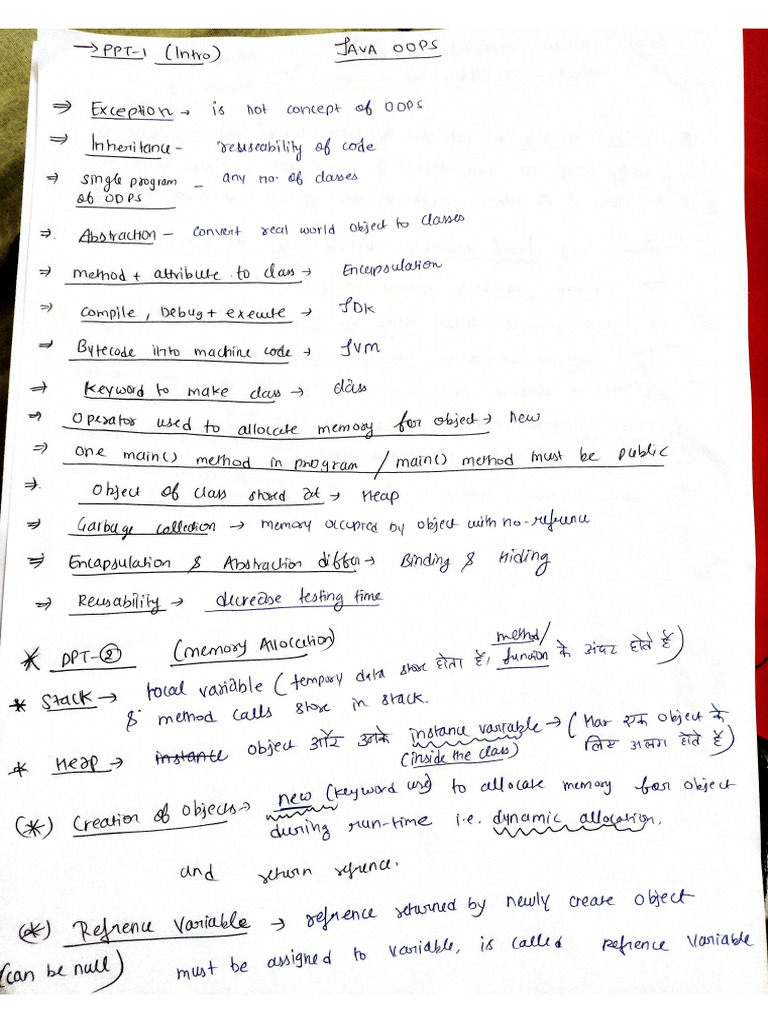 → PPT-1 (Intro) JAVA OOPS
⇒ Exception → is not concept of OOPS
⇒ Inheritance - resuseability of code
⇒ single program - any no. of classes
of OOPS
⇒ Abstraction - convert real world object to classes
⇒ method + attribute to class → Encapsulation
⇒ compile, Debug + execute → JDK
⇒ Bytecode into machine code → JVM
⇒ Keyword to make class → class
⇒ Operator used to allocate memory for object → new
⇒ one main() method in program / main() method must be public
⇒ Object of class stored at → Heap
⇒ Garbage collection → memory occupied by object with no-refrence
⇒ Encapsulation & Abstraction differ → Binding & Hiding
⇒ Reusability → decrease testing time
* PPT-② (Memory Allocation)
* Stack → local variable (tempory data store होता है, method/function के अंदर होते हैं)
& method calls store in stack.
* Heap → instante object और उनके instance variable → (Har एक object के
(inside the class) लिए अलग होते हैं)
(*) Creation of Objects → new (keyword use) to allocate memory for object
during run-time i.e. dynamic allocation,
and return refrence.
(*) Refrence Variable → refrence returned by newly create object
(can be null) must be assigned to variable, is called Refrence Variable